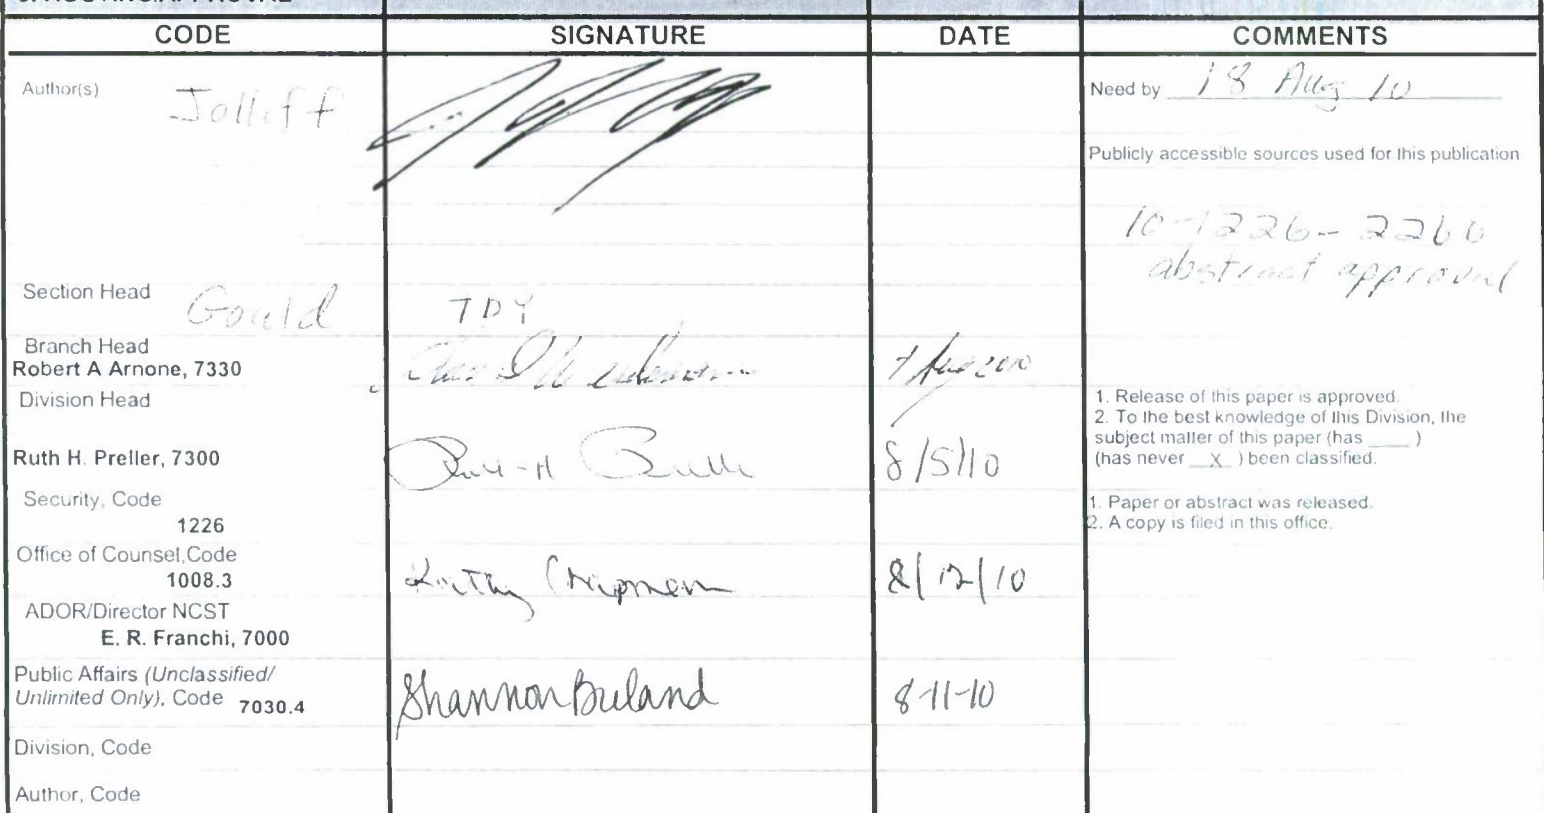 CODE SIGNATURE DATE COMMENTS
Author(s) Jolliff Need by 18 Aug 10
Publicly accessible sources used for this publication
10-1226-2260
abstract approval
Section Head Gould TDY
Branch Head
Robert A Arnone, 7330 Aug 2010
Division Head
1. Release of this paper is approved.
2. To the best knowledge of this Division, the
subject matter of this paper (has ____ )
(has never __X__ ) been classified.
Ruth H. Preller, 7300 Ruth H Preller 8/5/10
Security, Code
1226
1. Paper or abstract was released.
2. A copy is filed in this office.
Office of Counsel,Code
1008.3 Kathy Chapman 8/12/10
ADOR/Director NCST
E. R. Franchi, 7000
Public Affairs (Unclassified/
Unlimited Only), Code 7030.4 Shannon Breland 8-11-10
Division, Code
Author, Code